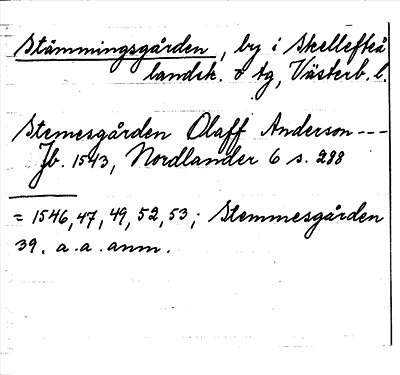 Stämmingsgården, by i Skellefteå
landsk. o tg, Västerb. l.
Stemesgården Olaff Anderson ---
Jb. 1543, Nordlander 6 s. 288
= 1546, 47, 49, 52, 53; Stemmesgården
39. a. a. anm.